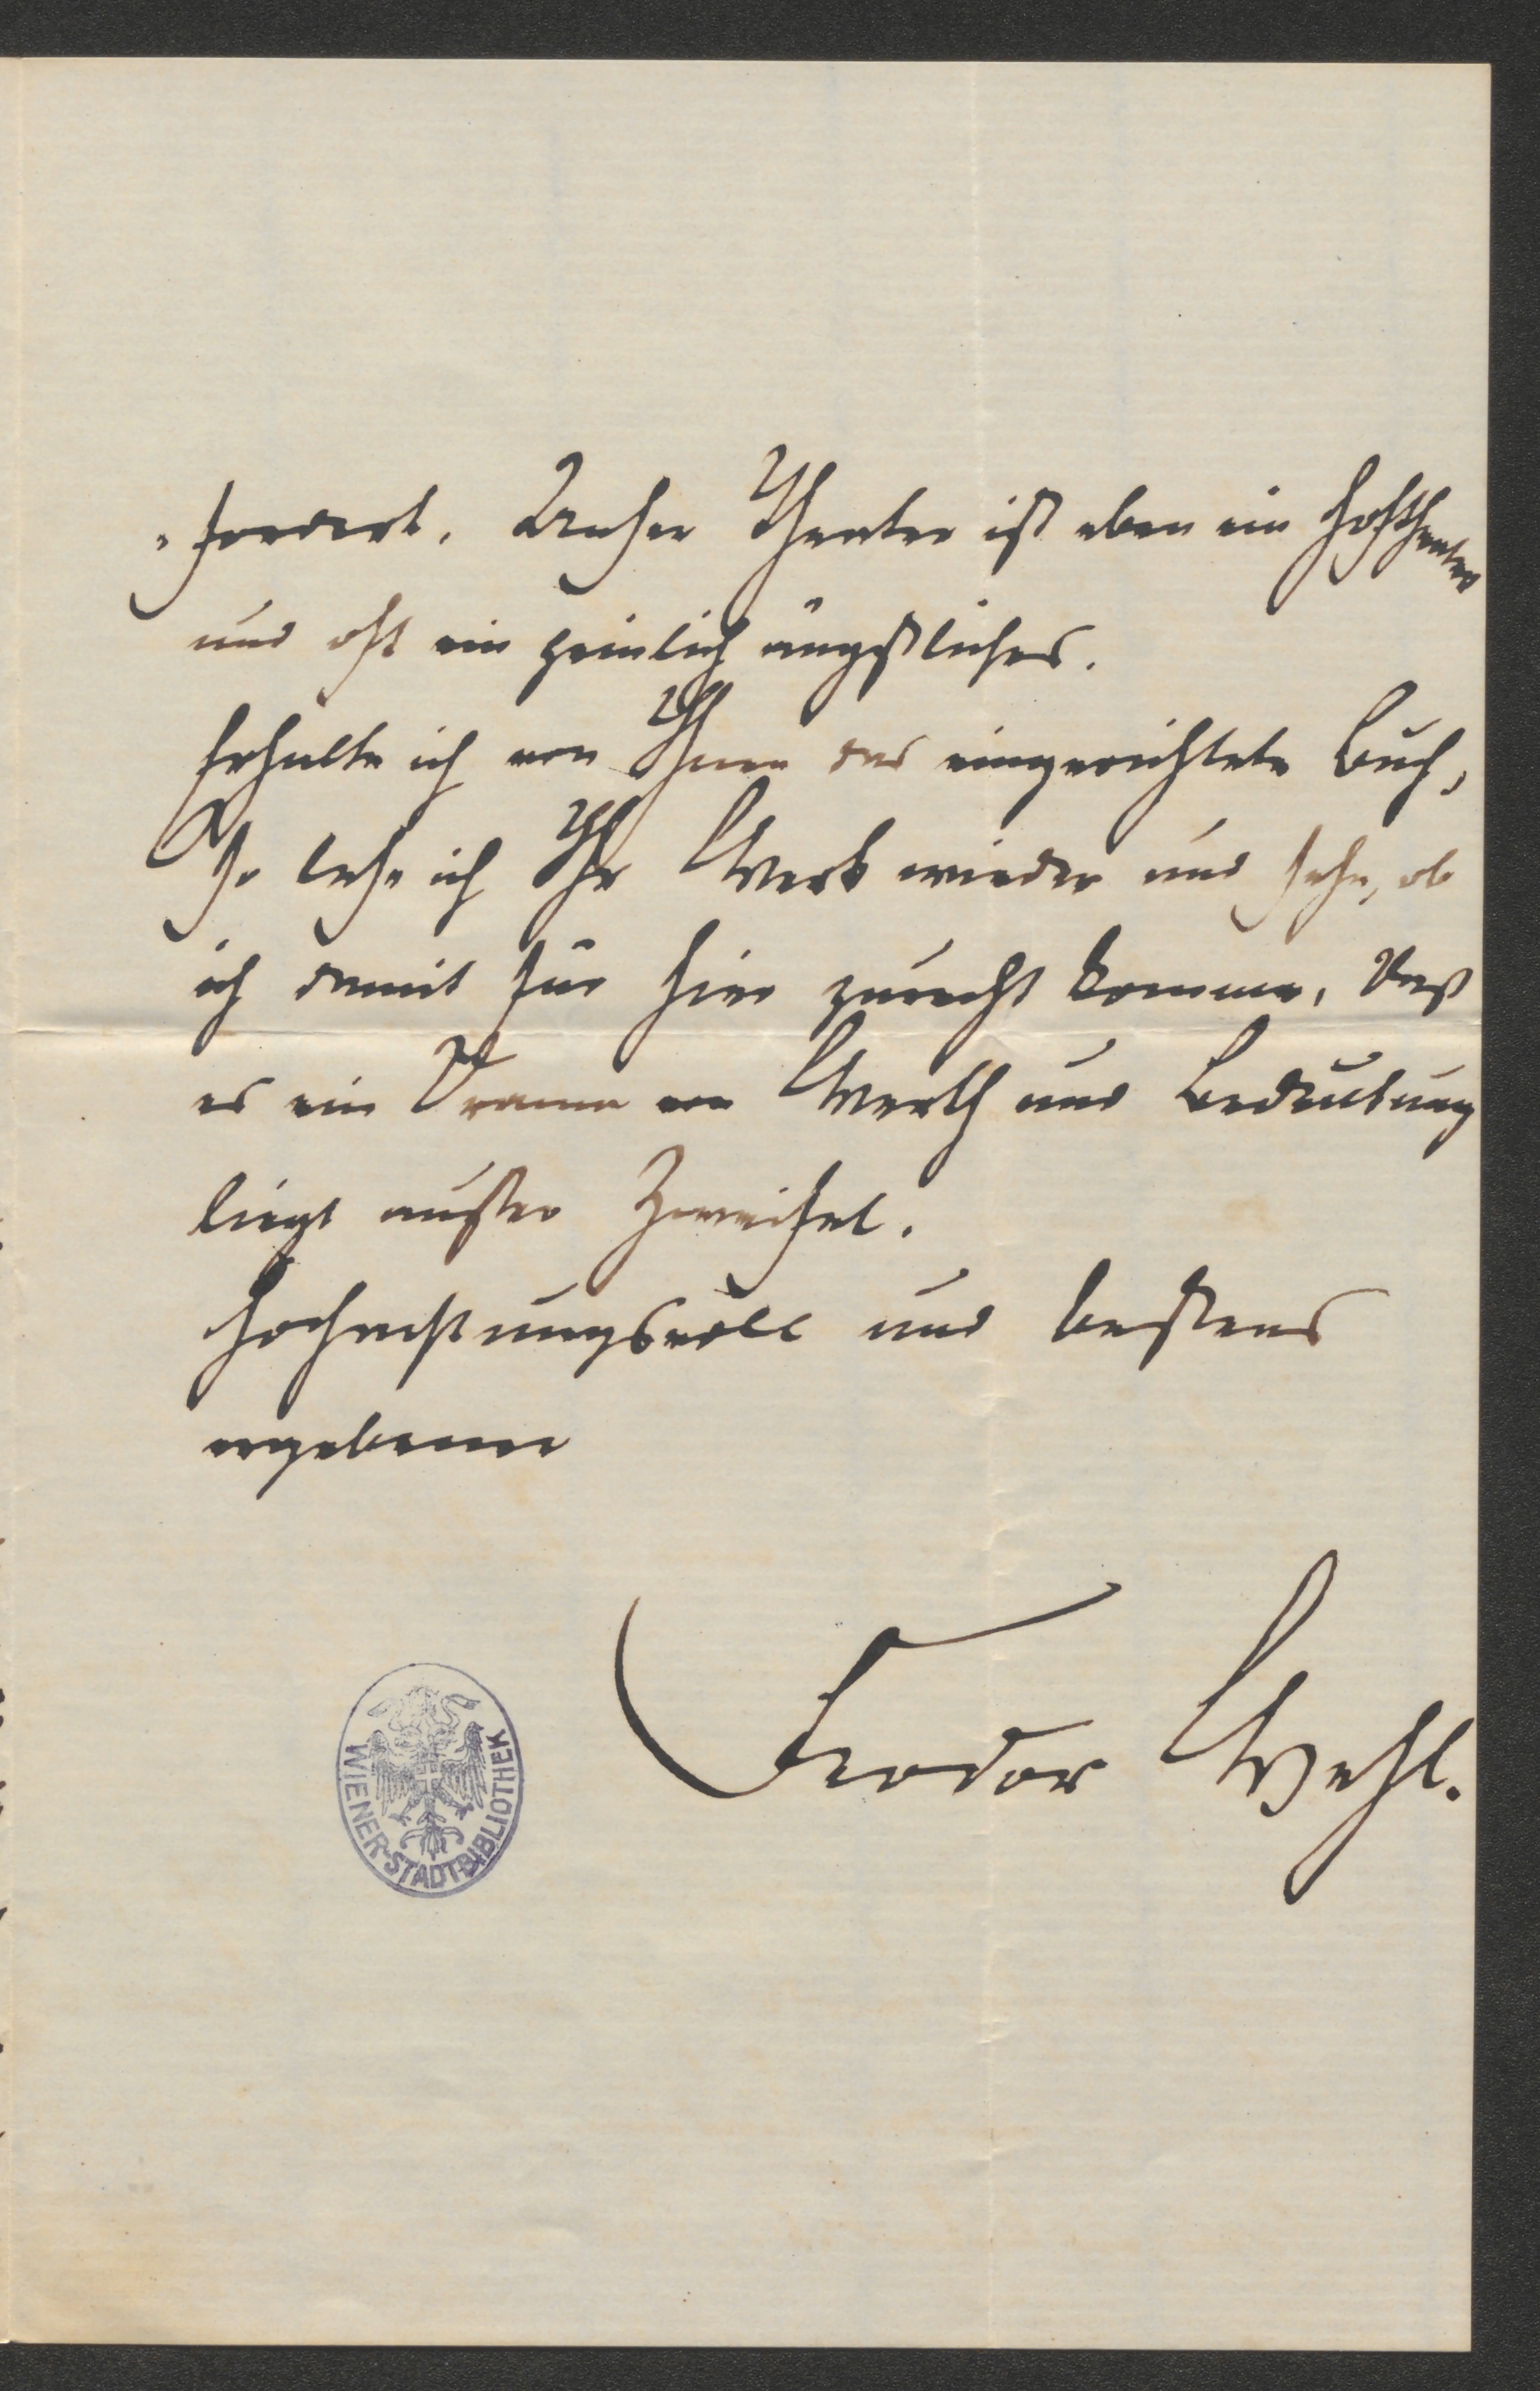 „fordert. Unser Theater ist eben ein Hoftheater
und oft ein peinlich ängstliches.
Erhalte ich von Ihnen das eingerichtete Buch,
So lese ich Ihr Werk wieder und sehe, ob
ich damit für hier zurecht komme. Daß
es ein Drama von Werth und Bedeutung
liegt außer Zweifel.
Hochachtungsvoll und bestens
ergebener
Feodor Wehl.
WIENER-STADT-BIBLIOTHEK